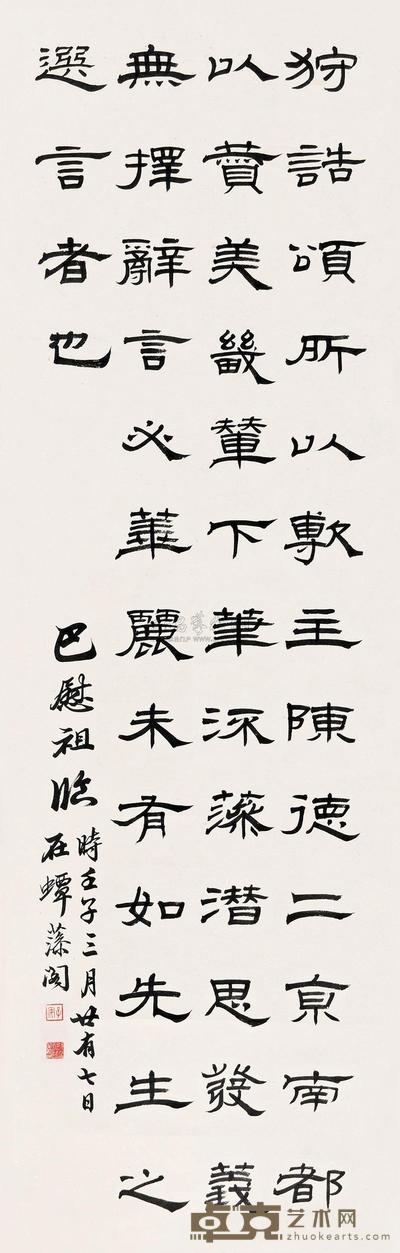 狩誥頌所以敷主陳德二京南都
以贊美畿輦下筆流藻潛思發義
無擇辭言必華麗未有如先生之
選言者也
巴慰祖臨
時壬子三月廿有七日
在蟫藻閣
卓克艺术网
zhuokearts.com